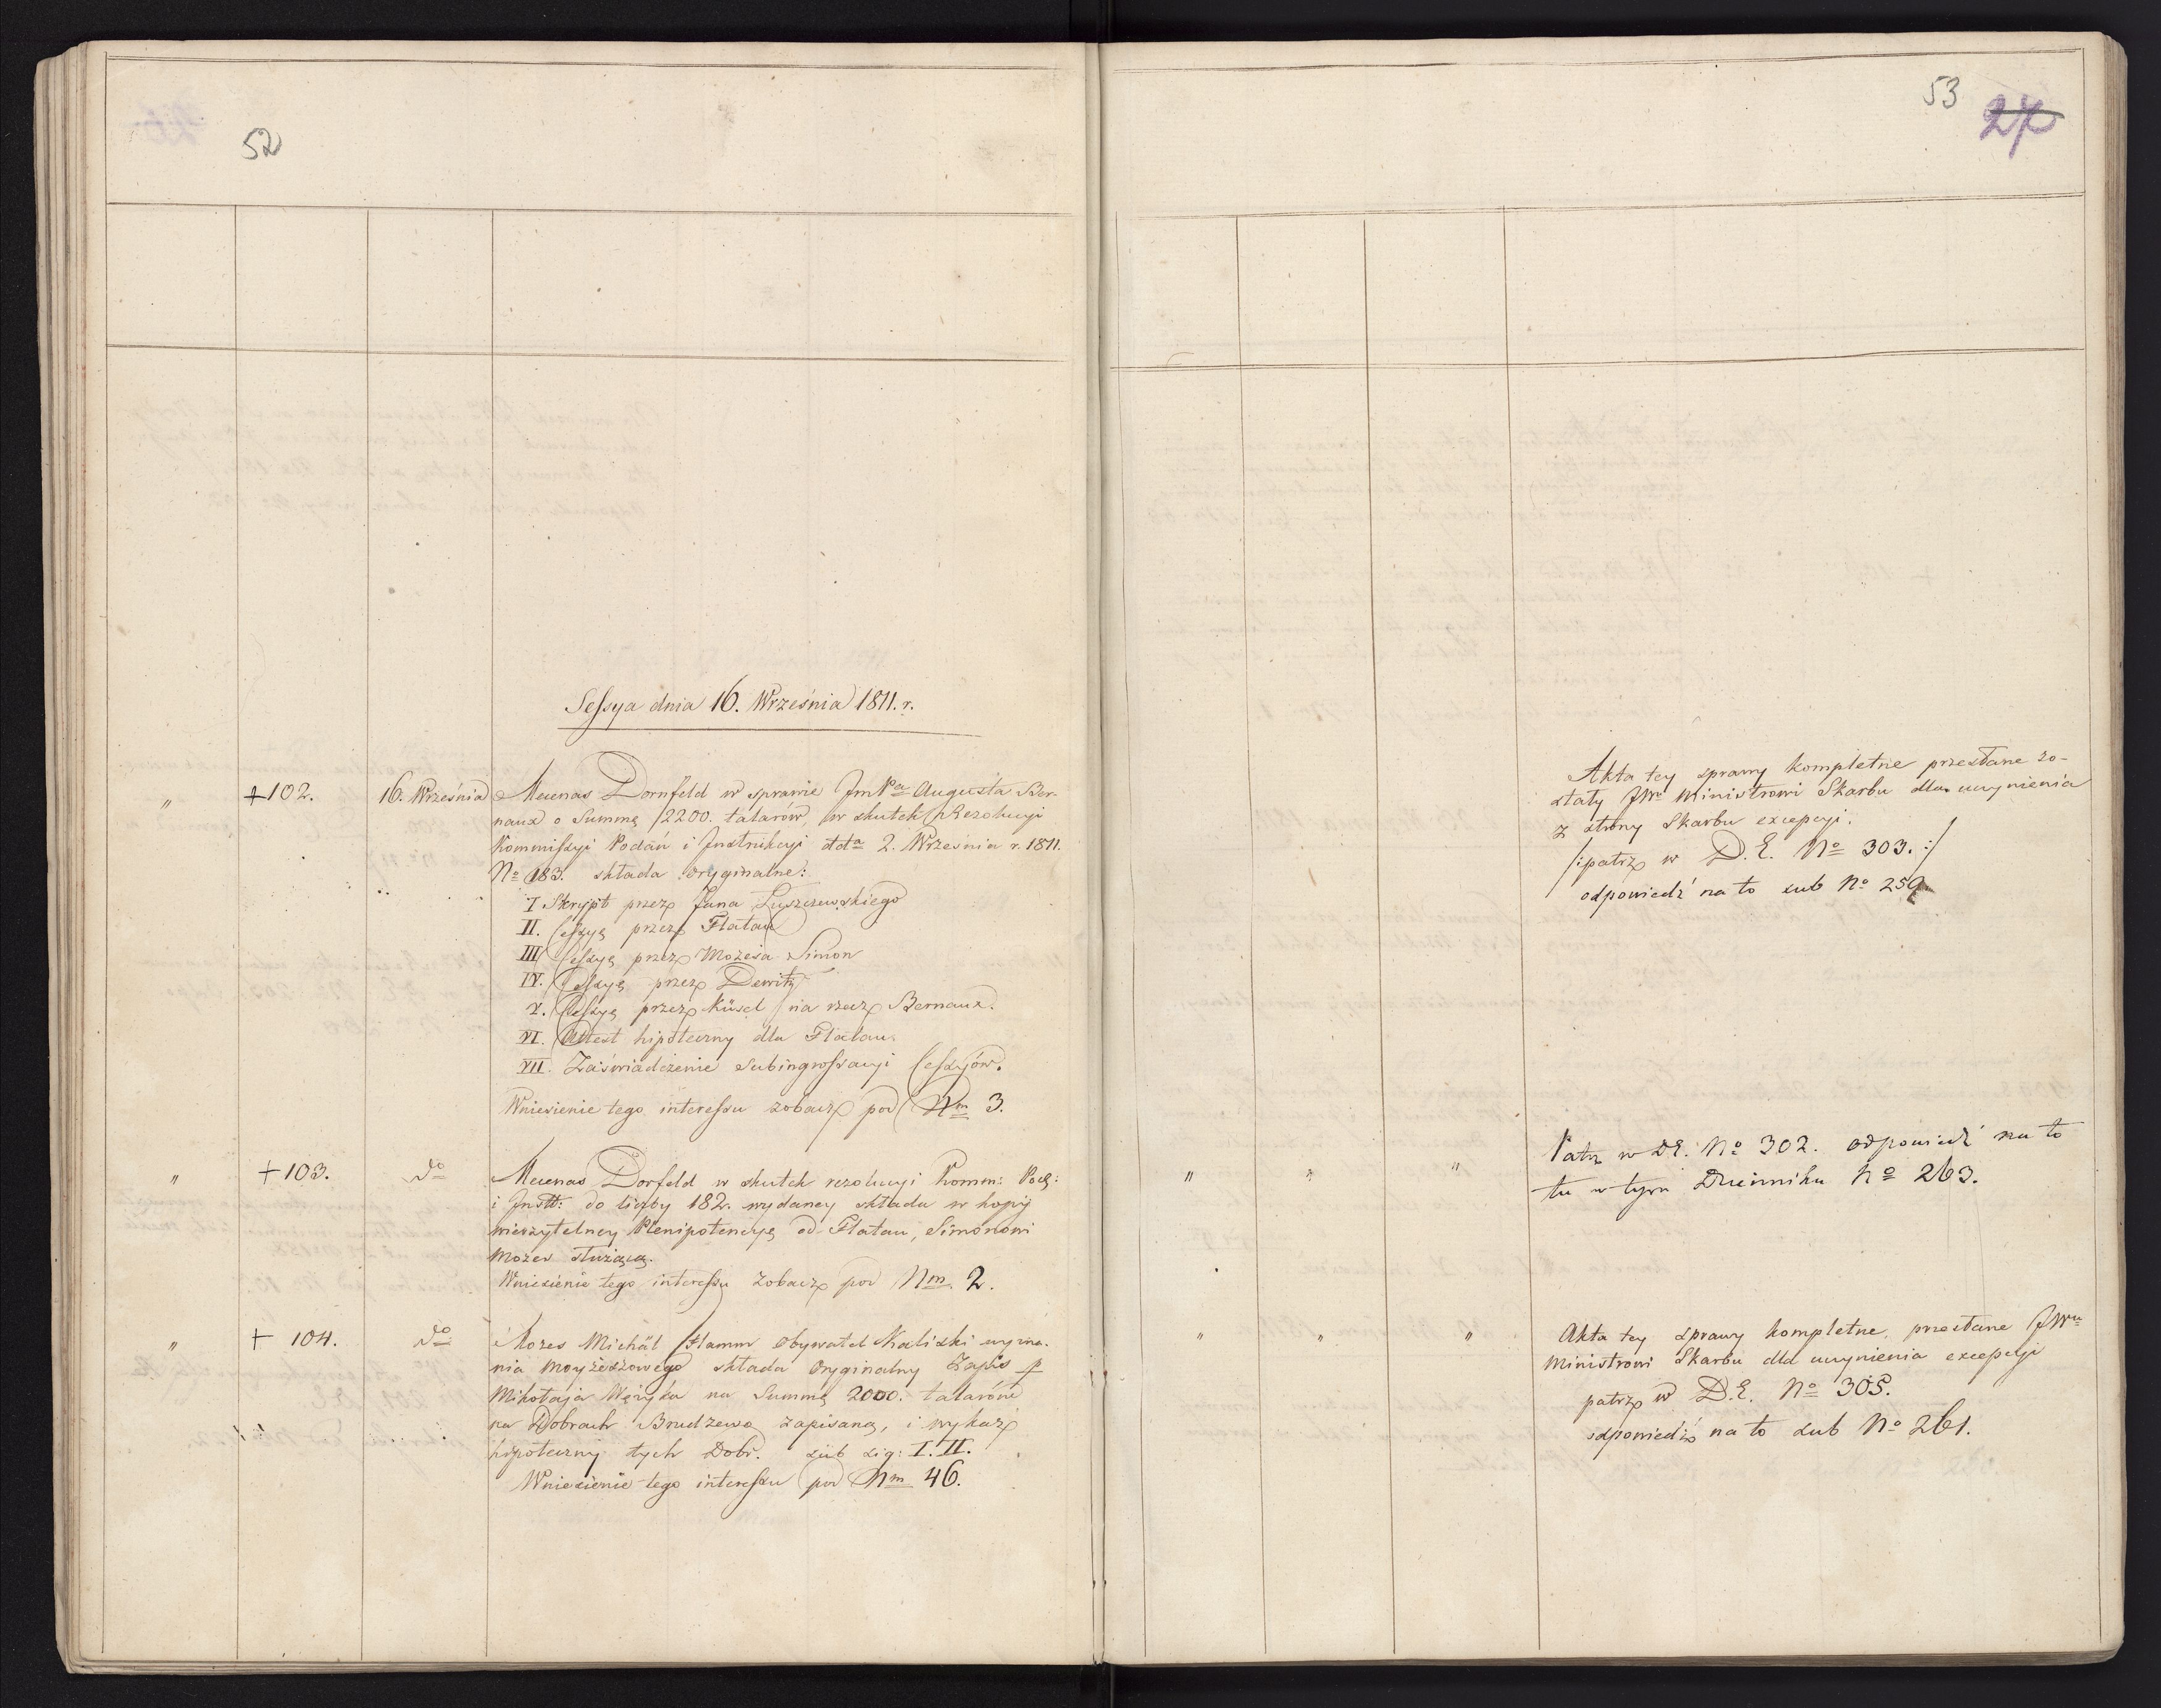 52
Sessya dnia 16. Września 1811. r.
" +102. 16. Września Mecenas Dornfeld w sprawie JmPa Augusta Ber-
naux o Summę 2200. talarów, w skutek Rezolucyi
Kommissyi Podań i Instrukcyi dda 2. Września r. 1811.
No 183. składa oryginalne:
I Skrypt przez Jana Łuszczewskiego
II. Cessyą przez Flatau
III Cessyą przez Mozesa Simon
IV. Cessyą przez Dewitz
V. Cessyą przez Küsel na rzecz Bernaux.
VI. Attest hipoteczny dla Flatau.
VII. Zaświadczenie Subingrossacyi Cessyów.
Wniesienie tego interessu zobacz pod Nm 3.
" +103. do Mecenas Dorfeld w skutek rezolucyi Komm: Pod:
i Instt: do liczby 182. wydaney składa w kopij
wierzytelney Plenipotencyą od Flatau, Simonowi
Mozes służącą.
Wniesienie tego interessu zobacz pod Nm. 2.
" + 104. do Mozes Michäl Hamm Obywatel Kaliski wyzna-
nia Moyżeszowego składa Oryginalny Zapis p
Mikołaja Wężyka na Summę 2000. talarów
na Dobrach Brudzewo zapisaną, i wykaz
hipoteczny tych Dobr. sub sig: I. II.
Wniesienie tego interessu pod Nm 46.
53
27
Akta tey sprawy kompletne przesłane zo-
stały JWu Ministrowi Skarbu dla uczynienia
z strony Skarbu excepcyi.
/:patrz w D.E. No 303.:/
odpowiedź na to sub No 259
" " " Patrz w DE. No 302. odpowiedź na to
tu w tym Dzienniku No 263.
" " " Akta tey sprawy kompletne, przesłane JWu
Ministrowi Skarbu dla uczynienia excepcyi
patrz w D.E. No 305.
odpowiedź na to sub No 261.